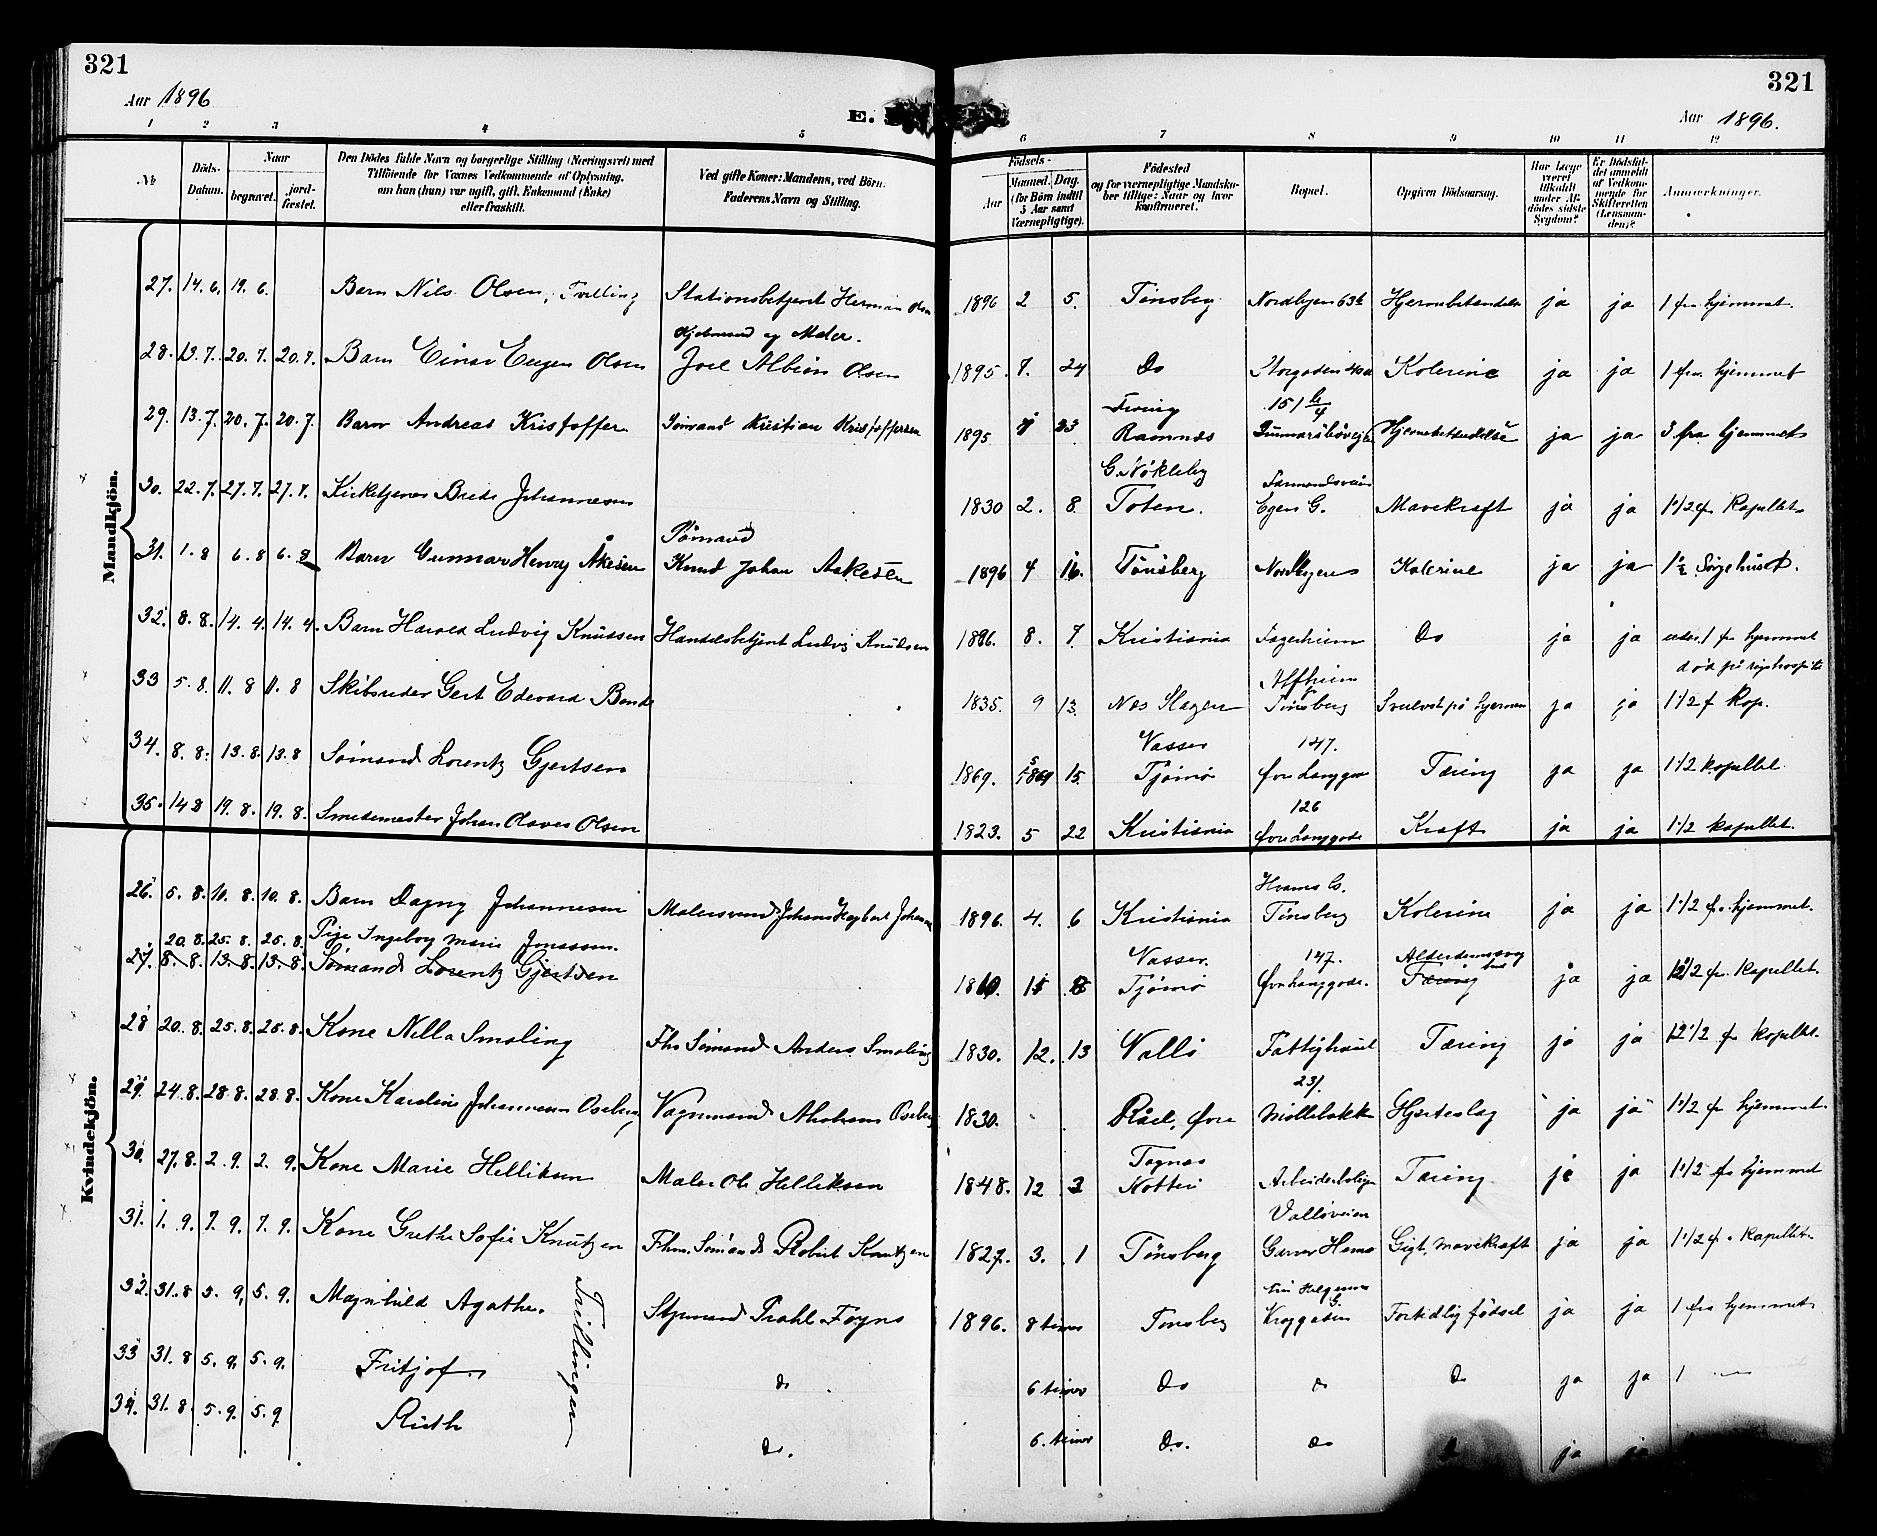 321
Aar 1896
E.
321
Aar 1896.
1 2 3 4 5 6 7 8 9 10 11 12
№
Döds-Datum.
Naar
begravet. jord-fæstet.
Den Dödes fulde Navn og borgerlige Stilling (Næringsvei) med
Tilföiende for Vedkommende af Oplysning,
om han (hun) var ugift, gift, Enkemand (Enke)
eller fraskilt.
Ved gifte Koner: Mandens, ved Börn:
Faderens Navn og Stilling.
Födsels-
Aar
Maaned. Dag.
(for Börn indtil
5 Aar samt
Værnepligtige).
Födested
og for værnepligtige Mandskaber tillige: Naar og hvor
konfirmeret.
Bopæl.
Opgiven Dödsaarsag.
Har Læge
været
tilkaldt
under Afdödes sidste
Sygdom?
Er Dödsfaldet anmeldt
af Vedkommende for
Skifteretten
(Lensmanden)?
Anmærkninger.
Mandkjön.
27. 14. 6. 19. 6. Barn Nils Olsen, Tvilling Stationsbetjent Herman Olsen 1896 2 5. Tönsberg Nordbyen 63b Hjernebetændelse ja ja 1 fra hjemmet.
28. 13. 7. 20. 7. 20. 7. Barn Einar Eugen Olsen Joel Albion Olsen 1895. 7. 24 Do Storgaden 40a Kolerine ja ja 1 fra hjemmet
29. 13. 7. 20. 7. 20. 7. Barn Andreas Kristoffer Sömand Kristian Kristoffersen 1895 23 Ramnæs Hjernebetændelse ja ja 3 fra hjemmet
30. 22. 7. 27. 7. 27. 7. Kirketjener Brede Johannesen 1830 2. 8. G. Nökleby Toten. Farmandsveien Egen G. Mavekræft ja ja 1 1/2 f. Kapellet
31. 1. 8 6. 8 6. 8 Barn Gunnar Henry Åkesen Sömand Knud Johan Aakesen 1896 4 16. Tönsberg Nordbyen Kolerine ja ja 1 1/2 Sygehuset.
32. 8. 8. 14. 4. 14. 4. Barn Harald Ludvig Knudsen Handelsbetjent Ludvig Knudsen 1886. 8. 7. Kristiania Fagerheim Do ja ja 1 fr hjemmet
död på rigshospit.
33 5. 8. 11. 8 11. 8 Skibsreder Gert Edevard Bonde 1835. 9 13. Næs Slagen Alfheim Tönsberg Svulst på hjernen ja ja 1 1/2 f Kap.
34. 8. 8. 13. 8. 13. 8 Sömand Lorentz Gjertsen 1869. 15 Vasser Tjömö 147. Övre Langgade Tæring ja ja 1 1/2 kapellet
35. 14 8 19. 8. 19. 8. Smedemester Johan Olaves Olsen 1823. 5 22 Kristiania 126 Övre Langgade Kræft ja ja 1 1/2 kapellet.
Kvindekjön.
26. 5. 8. 10. 8. 10. 8. Barn Dagny Johannesen Malersvend Johans 1896. 4. 6 Kristiania Tönsberg Kolerine ja ja 1 1/2 fr. hjemmet.
27. 20. 8. 25. 8. 25. 8. Pige Ingeborg Marie Jonassen
8. 8. 13. 8. 13. 8. Sömand Lorentz Gjertsen Vasser. Tjömö 147. Övre Langgade. Tæring ja ja 1/2 fr. Kapellet.
28 20. 8. 25. 8. 25. 8. Kone Nilla Smaling Fhv Sömand Anders Smaling 1830. 12. 13 Vallö Fattighuset Tæring ja ja 1/2 fr kapellet.
29. 24. 8. 28. 8. 28. 8. Kone Karoline Johannesen Oseberg Vognmand Abraham Oseberg 1830. Råel, Övre 231. Möllebakken Hjerteslag ja ja 1 1/2 fr hjemmet.
30. 27. 8. 2. 9. 2. 9. Kone Marie Helliksen Maler Ole Helliksen 1848. 12 Nötterö Arbeiderbolig Tæring ja ja 1 1/2 fr hjemmet
31. 1. 9. 7. 9. 7. 9. Kone Grethe Sofie Knutzen Fhv. Sömand Robert Knutzen 1827. 3. 1 Tönsberg Vallöveien Gigt, Mavekræft ja ja 1 1/2 fra Kapellet
32. 31. 8 5. 9. 5. 9. Magnhild Agathe. Styrmand Prahl Foyns 1896. 8 timer Tönsberg Kroggaden Fortidlig födsel ja ja 1 fra hjemmet
33 31. 8 5. 9. 5. 9. Fritjof. do 6 timer Do do do ja ja 1 —
34. 31. 8. 5. 9. 5. 9 Ruth Do. 6. timer Do. do ja ja
Trillinger